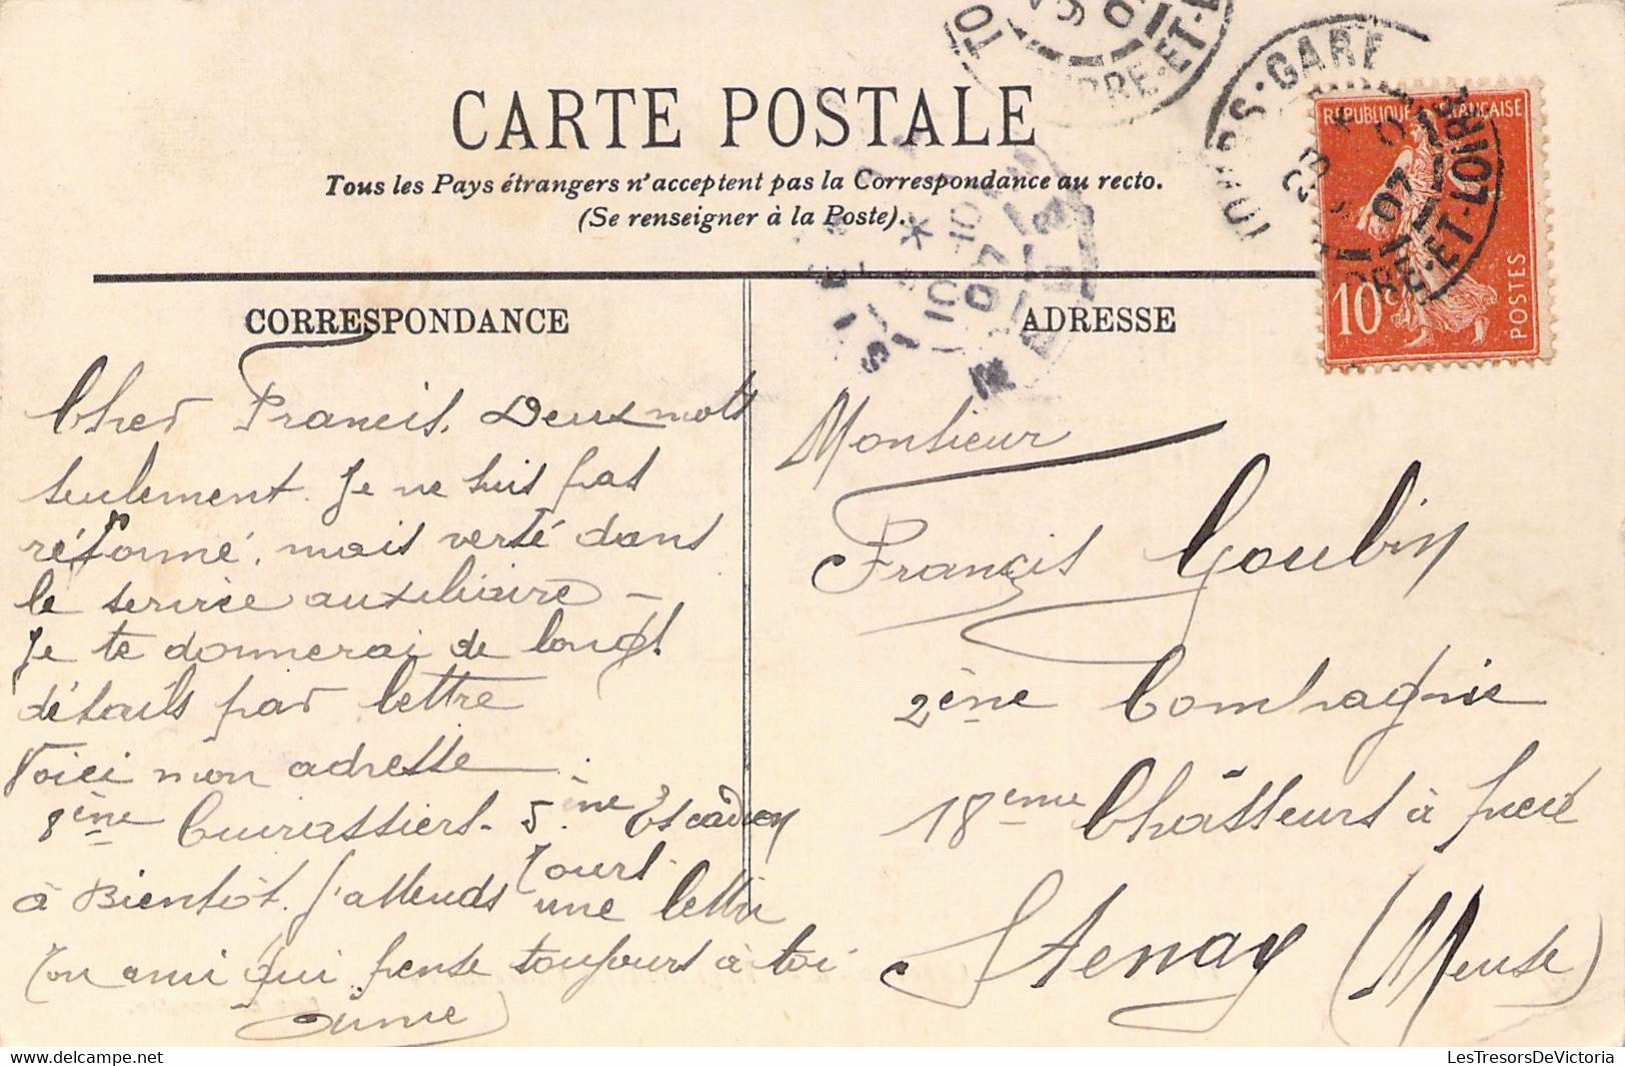 CARTE POSTALE
Tous les Pays étrangers n'acceptent pas la Correspondance au recto.
(Se renseigner à la Poste).
CORRESPONDANCE
Cher Francis. Deux mots
seulement. Je ne suis pas
réformé, mais versé dans
le service auxiliaire –
Je te donnerai de longs
détails par lettre
Voici mon adresse
8ème Cuirassiers. 5ème Escadron
Tours.
à Bientôt. J'attends une lettre
Ton ami qui pense toujours à toi
ADRESSE
Monsieur
Francis Goubin
2ème Compagnie
18eme Chasseurs à pied
Stenay (Meuse)
REPUBLIQUE FRANÇAISE
10c
POSTES
TOURS-GARE
23
07
INDRE-ET-LOIRE
INDRE-ET-L
10
07
LesTresorsDeVictoria